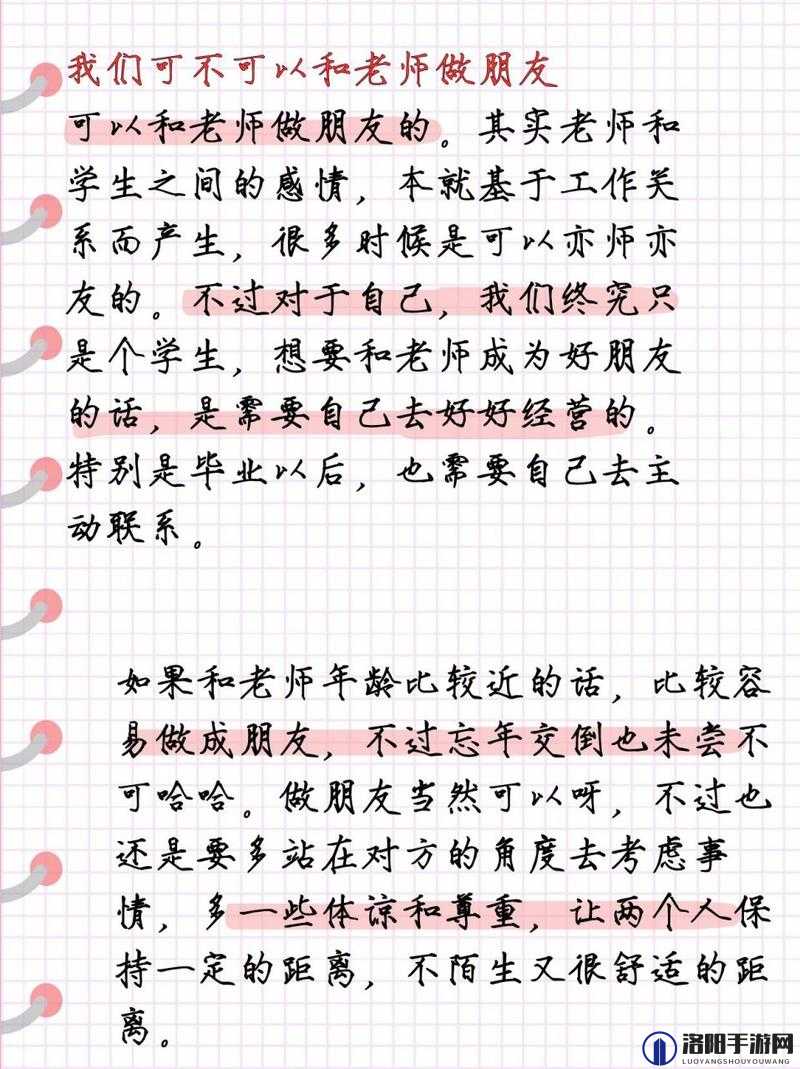 我们可不可以和老师做朋友
可以和老师做朋友的。其实老师和
学生之间的感情，本就基于工作关
系而产生，很多时候是可以亦师亦
友的。不过对于自己，我们终究只
是个学生，想要和老师成为好朋友
的话，是需要自己去好好经营的。
特别是毕业以后，也需要自己去主
动联系。
如果和老师年龄比较近的话，比较容
易做成朋友，不过忘年交倒也未尝不
可哈哈。做朋友当然可以呀，不过也
还是要多站在对方的角度去考虑事
情，多一些体谅和尊重，让两个人保
持一定的距离，不陌生又很舒适的距
离。
洛阳手游网
LUOYANGSHOUYOUWANG